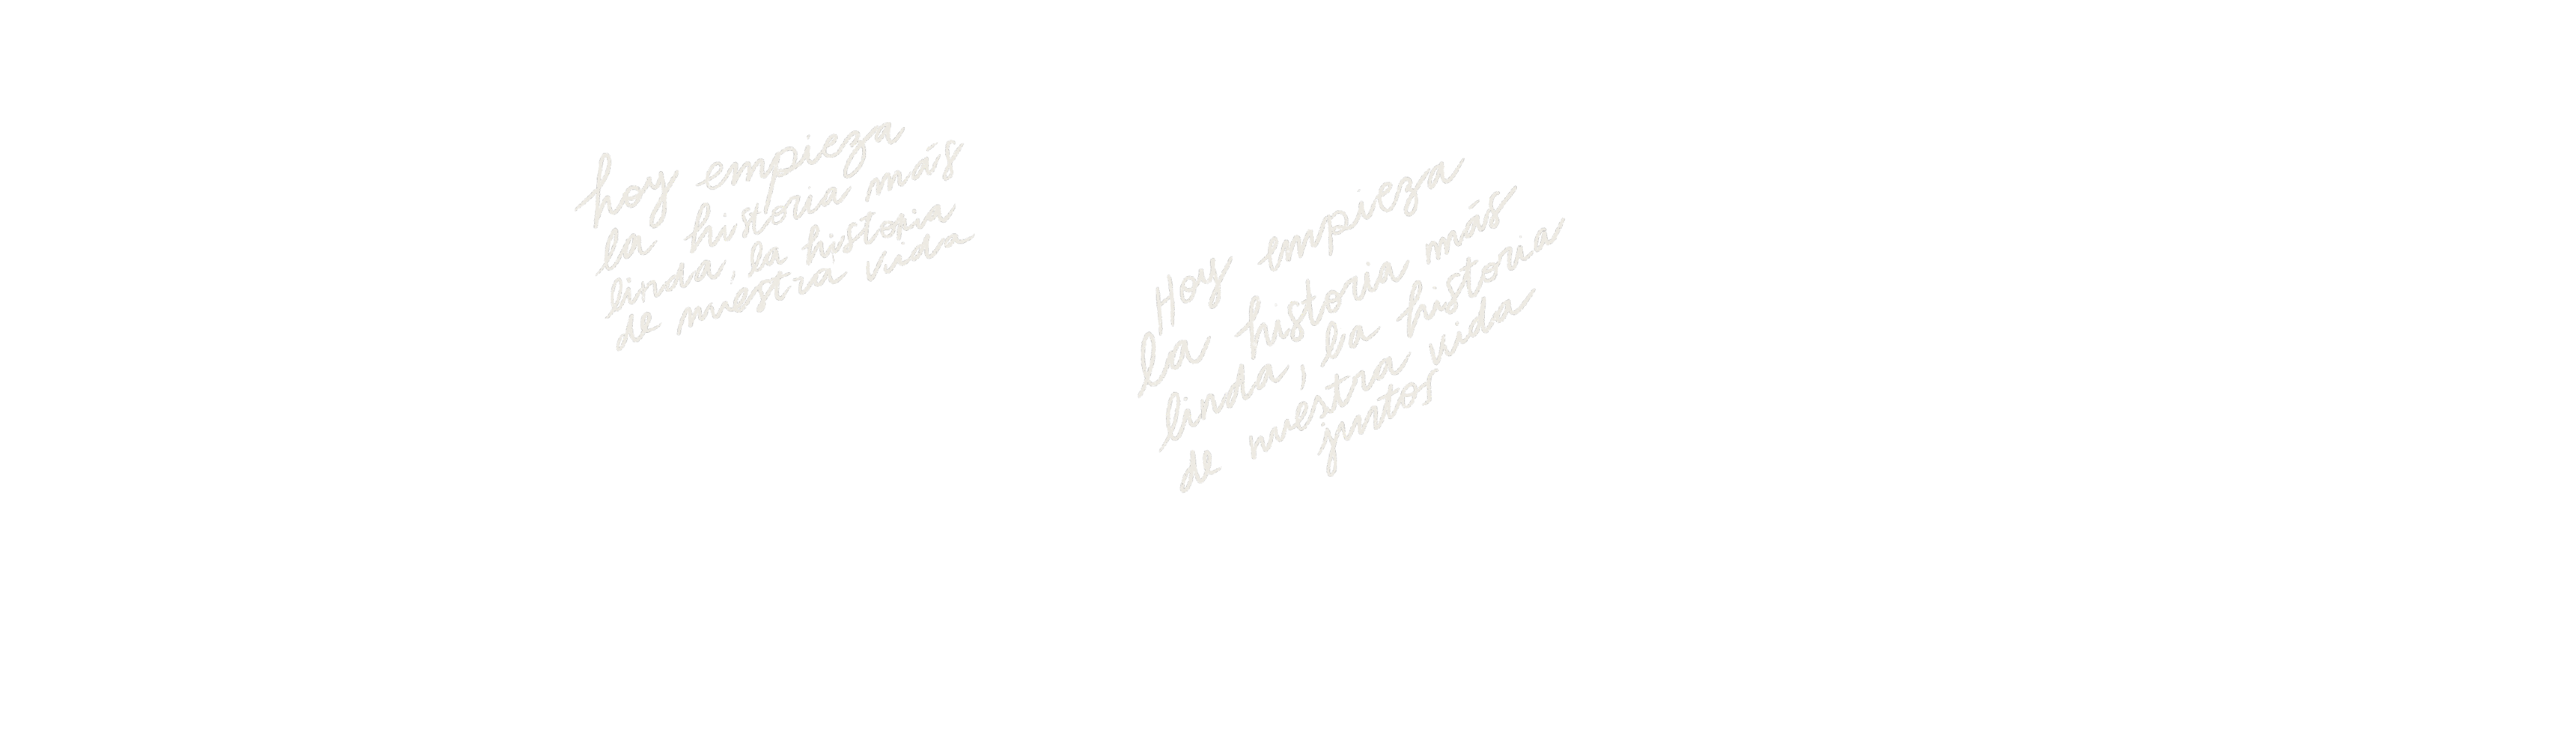 hoy empieza
la historia más
linda, la historia
de nuestra vida
Hoy empieza
la historia más
linda, la historia
de nuestra vida
juntos